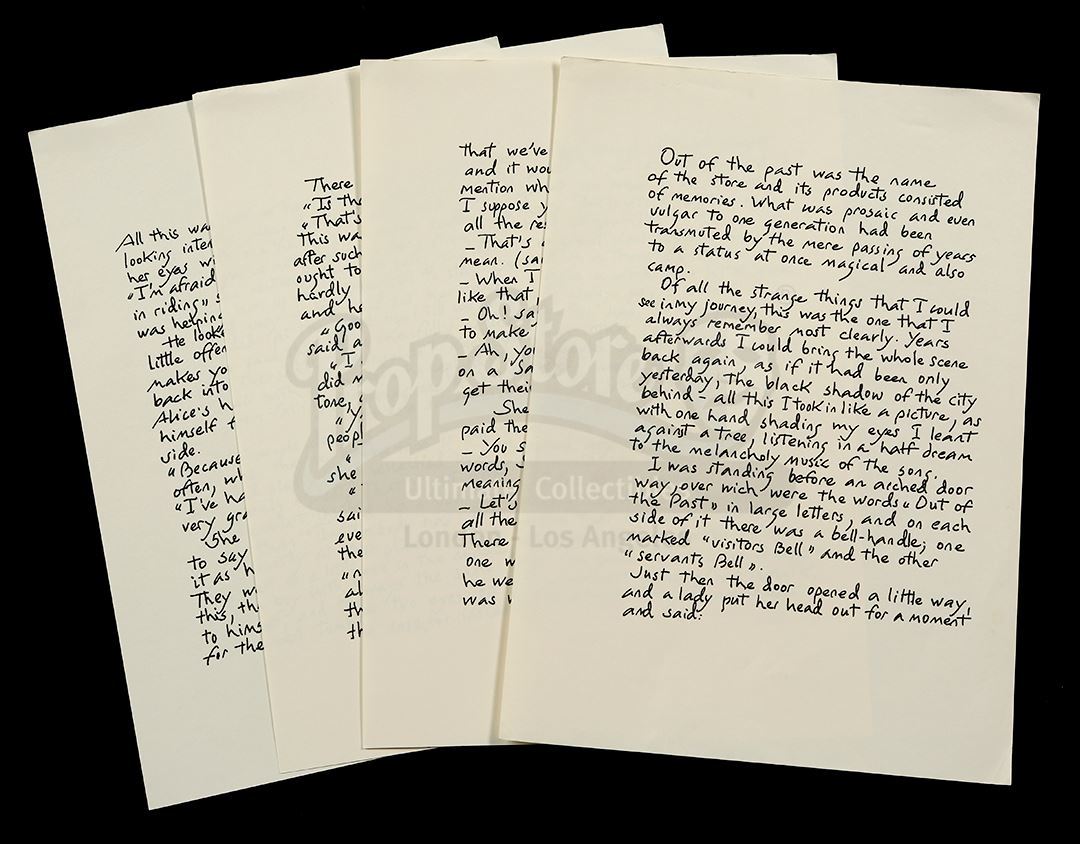 All this wa
looking inter
her eyes wi
"I'm afraid
in riding" s
was helping
He look
little offen
makes yo
back into
Alice's h
himself t
side.
"Because
often, wh
"I've ha
very gra
She
to say
it as h
They w
this, th
to hims
for the
There
"Is tha
"That's
this wa
after such
ought to
hardly
and he
"Goo
said a
"I
did n
tone,
"y
peopl
"
she
"
sai
eve
the
"n
al
th
th
that we've
and it wou
mention wh
I suppose y
all the res
– That's
mean. (sai
– When I
like that,
– Oh! sa
to make
– Ah, you
on a Sa
get thei
She
paid the
– You s
words,
meaning
– Let's
all the
There
one w
he we
was
Out of the past was the name
of the store and its products consisted
of memories. What was prosaic and even
vulgar to one generation had been
transmuted by the mere passing of years
to a status at once magical and also
camp.
Of all the strange things that I could
see in my journey, this was the one that I
always remember most clearly. Years
afterwards I could bring the whole scene
back again, as if it had been only
yesterday, the black shadow of the city
behind – all this I took in like a picture, as
with one hand shading my eyes I leant
against a tree, listening in a half dream
to the melancholy music of the song.
I was standing before an arched door
way, over wich were the words "Out of
the Past" in large letters, and on each
side of it there was a bell-handle; one
marked "visitors Bell" and the other
"servants Bell".
Just then the door opened a little way,
and a lady put her head out for a moment
and said:
PropStore
Ultim Collectib
London - Los Ang